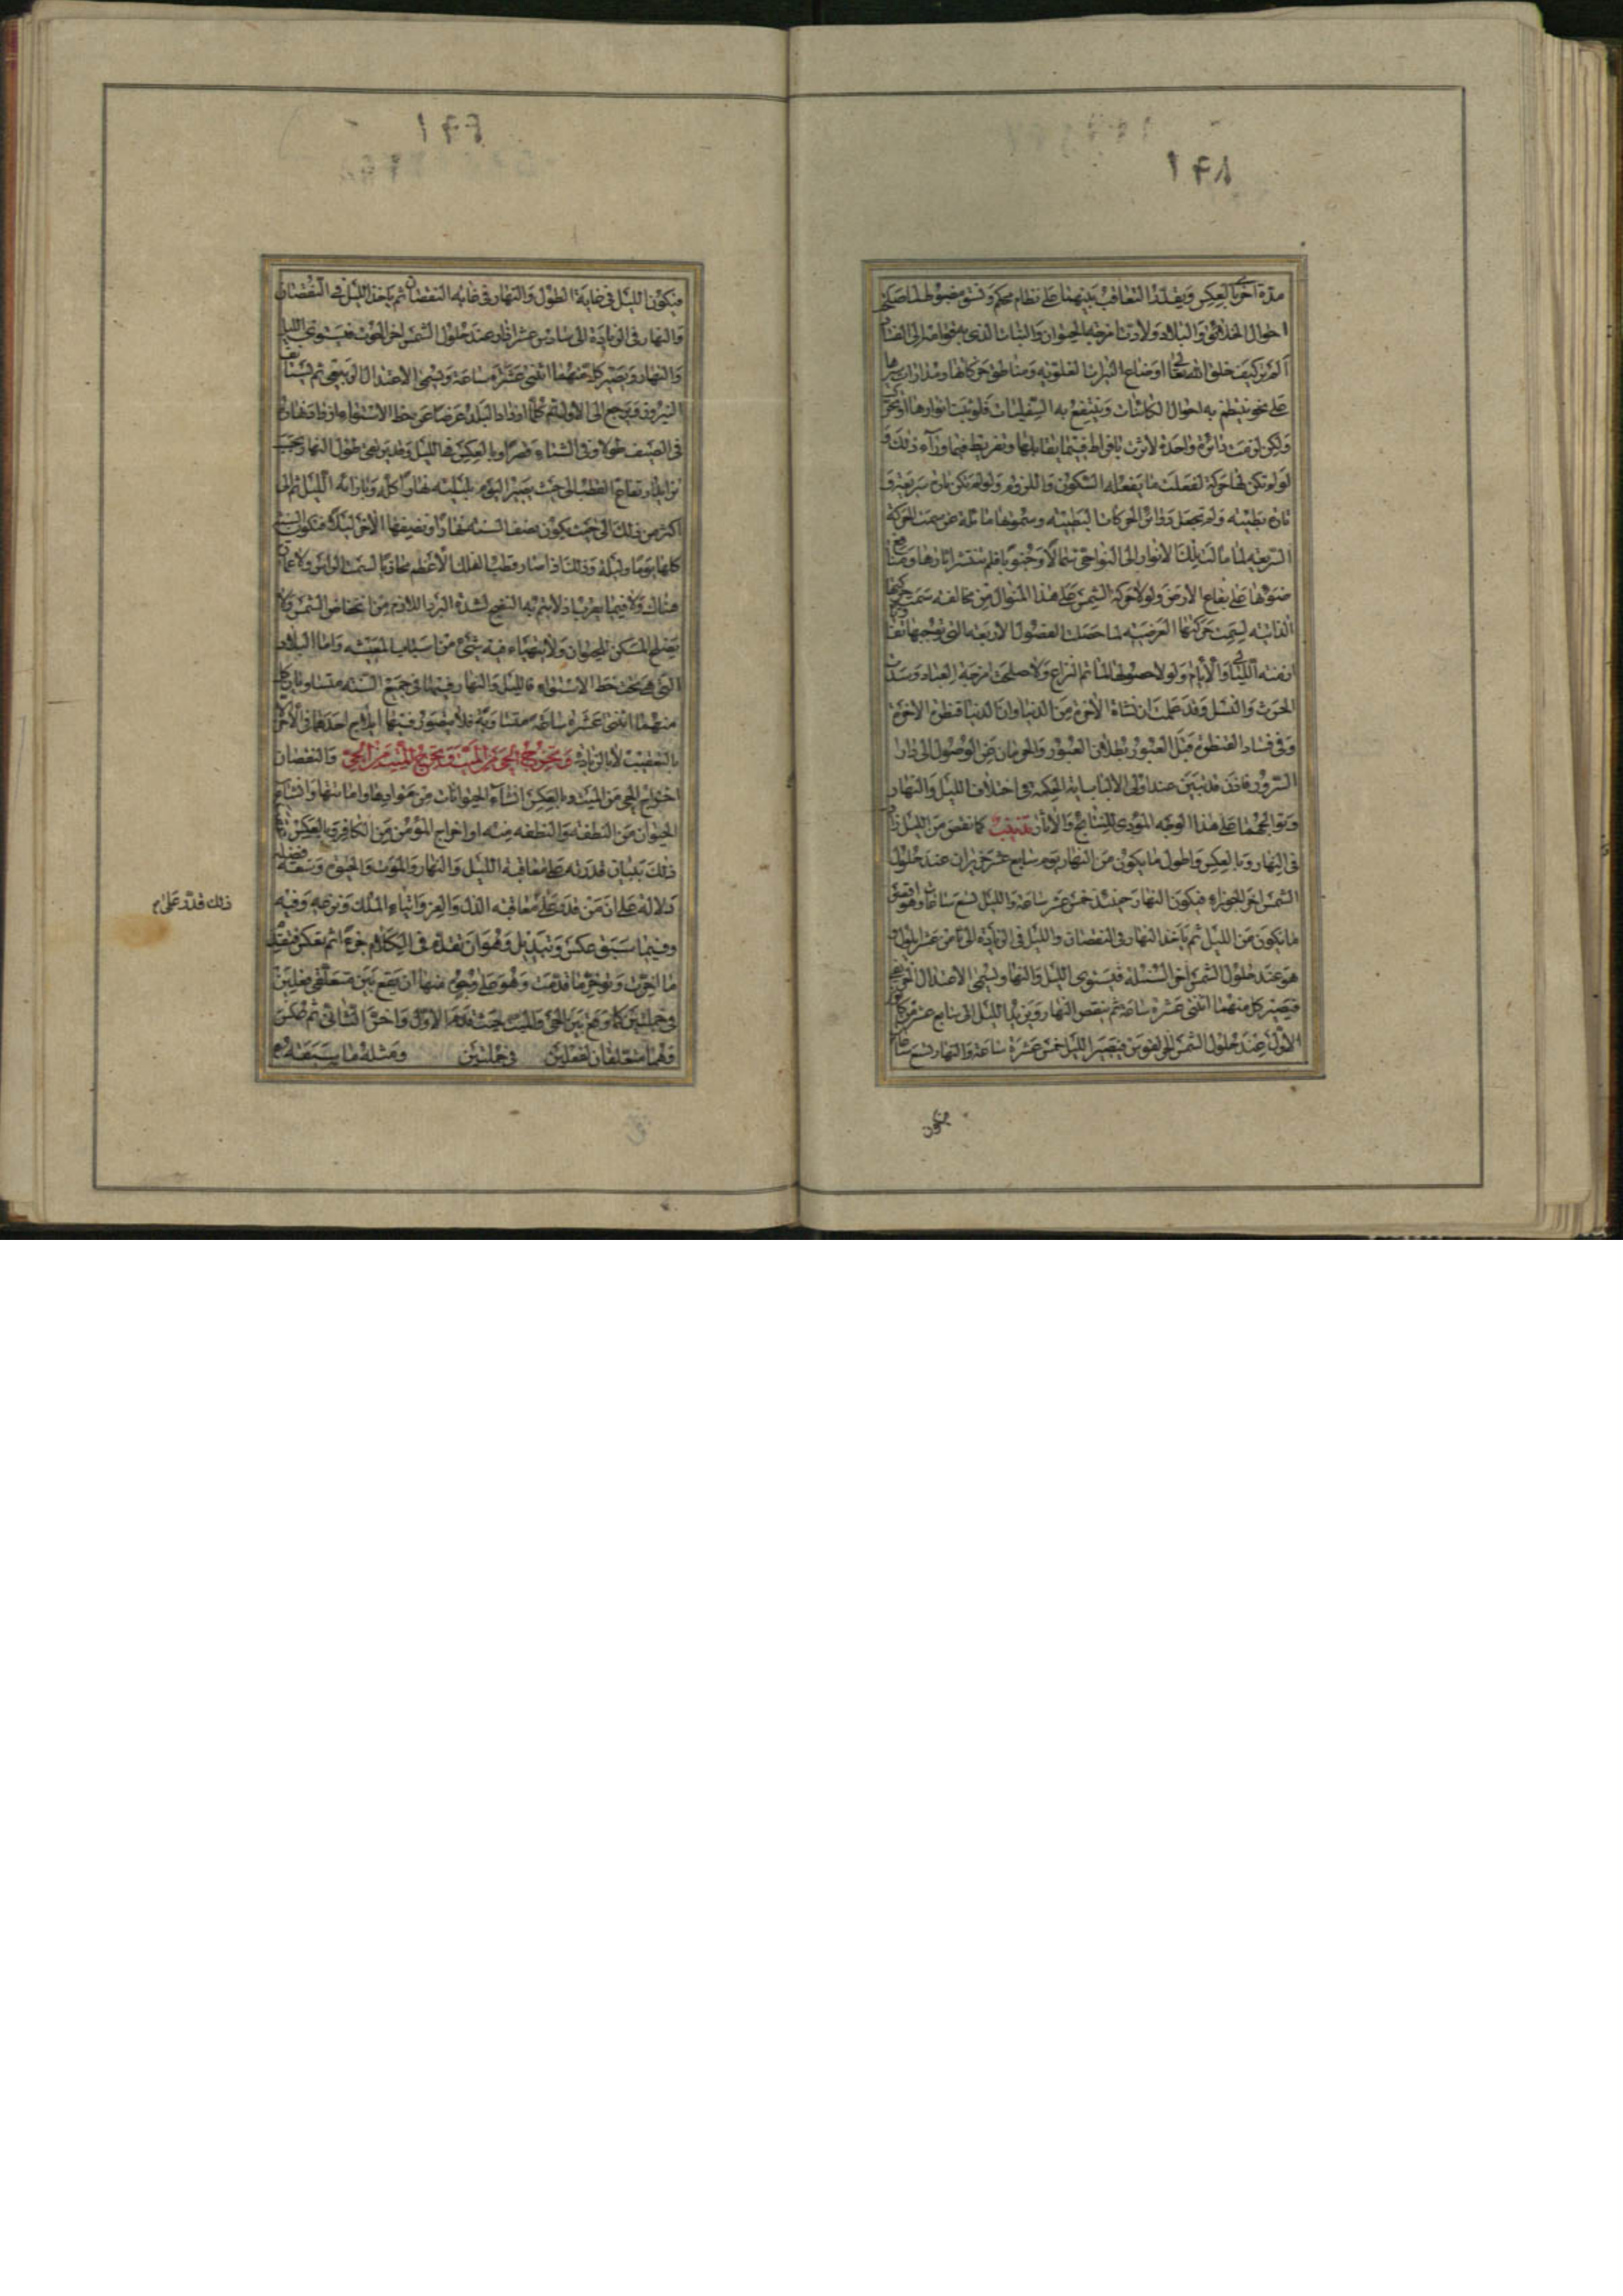 ١٤٨
مدة اخرى بالعكس ويقلد التعاقب بينهما على نظام محكم ونسق مضبوط لما صلح
احوال الخلائق والبلاد ولادت امزجة الحيوان والنبات الذى به
الم تر كيف خلق الله تعالى اوضاع النيرات العلوية ومناطق حركاتها ومدارات سيرها
على نحو ينتظم به احوال الكائنات وينتفع به السفليات فلو ثبت انوارها او تحرك
ولكن لزمت دائرة واحدة لاثرت بافراط فيما يقابلها وتفريط فيما ورآء ذلك و
لو لم تكن لها حركة لفعلت ما يفعله السكون واللزوم ولو لم تكن تارة سريعة و
تارة بطيئة ولم تجعل دوائر الحركات البطيئة وسموتها مائلة عن سمت الحركة
السريعة لما مالت تلك الانوار الى النواحى شمالا وجنوبا فلم تنتشر اثارها ومنافع
ضوئها على بقاع الارض ولولا حركة الشمس على هذا المنوال من مخالفة سمت حركتها
الذاتية لسمت حركتها العرضية لما حصلت الفصول الاربعة التى
ازمنة الليالى والايام ولولا حصولها لما تم الزراع ولا صلحت امزجة العباد و
الحرث والنسل وقد علمت ان نشاة الاخرة من الدنيا وان الدنيا قنطرة الاخرة
وفى فساد القنطرة قبل العبور بطلان العبور والحرمان عن الوصول الى دار
السرور فاذن قد تبين عند اولى الالباب اية الحكمة فى اختلاف الليل والنهار
وتوالجهما على هذا الوجه المؤدى للنتايج والاثار تذنيب كلما نقص من الليل زاد
فى النهار وبالعكس واطول ما يكون من النهار يوم سابع عشر حزيران عند حلول
الشمس اخر الجوزاء فيكون النهار حينئذ خمس عشر ساعة والليل تسع ساعات وهو اقصر
ما يكون من الليل ثم ياخذ النهار فى النقصان والليل فى الزيادة الى ثامن عشر ايلول و
هو عند حلول الشمس اخر السنبلة فيستوى الليل والنهار ويسمى الاعتدال الخريفى
فيصير كل منهما اثنتى عشرة ساعة ثم ينقص النهار ويزيد الليل الى سابع عشر كانون
الاول عند حلول الشمس اخر القوس فيصير الليل خمس عشرة ساعة والنهار تسع ساعات
فيكون
١٤٩
فيكون الليل فى غاية الطول والنهار فى غاية النقصان ثم ياخذ الليل فى النقصان
والنهار فى الزيادة الى سادس عشر اذار عند حلول الشمس اخر الحوت فيستوى الليل
والنهار ويصير كل منهما اثنتى عشرة ساعة ويسمى الاعتدال الربيعى ثم يستانف
السير ويرجع الى الاول ثم كلما ازداد البلد عرضا عن خط الاستواء ازداد نهاره
فى الصيف طولا وفى الشتاء قصرا وبالعكس فى الليل وقد يرتقى طول النهار بحسب
تزايد ارتفاع القطب الى حيث يصير اليوم بليلته نهارا كله وبازائه الليل ثم الى
اكثر من ذلك الى حيث يكون نصف السنة نهارا ونصفها الاخر ليلا فيكون السنة
كلها يوما وليلة وذلك اذا صار قطب الفلك الاعظم محاذيا لسمت الراس ولا عمارة
هناك ولا فيما يقرب اذ لا يتم به النضج لشدة البرد اللازم من انخفاض الشمس ولا
يصلح المسكن للحيوان ولا يتهياء فيه شئ من اسباب المعيشة واما البلاد
التى هى تحت خط الاستواء فالليل والنهار فيها فى جميع السنة متساويان كل
منهما اثنتى عشرة ساعة متساوية فلا يتصور فيها ايلاج احدهما فى الاخر الا
بالتعقيب لا بالزيادة والنقصان وتخرج الحى من الميت وتخرج الميت من الحى
اخراج الحى من الميت وبالعكس انشآء الحيوانات من موادها واماتتها وانشاء
الحيوان من النطفة والنطفة منه او اخراج المؤمن من الكافر وبالعكس
ذلك ببيان قدرته على معاقبة الليل والنهار والموت والحيوة وسعة فضله
دلالة على ان من قدر على معاقبة الذل والعز وايتاء الملك ونزعه وفيه
وفيما سبق عكس وتبديل وهو ان تقدم فى الكلام جزءا ثم تعكس فتقدم
ما اخرت وتوخر ما قدمت وهو على وجوه منها ان يقع بين متعلقى فعلين
فى جملتين كما وقع بين الحى والميت حيث قدم الاول واخر الثانى ثم عكس
وهما متعلقان لفعلين فى جملتين ومثله ما سبقه
ذلك قدر على م